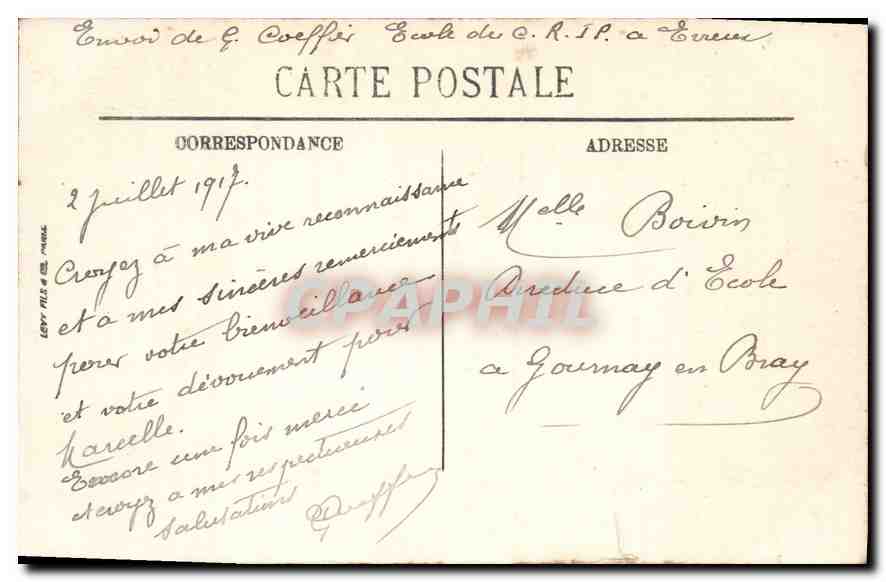 Envoi de G. Coeffier Ecole du C. R. I P. a Evreux
CARTE POSTALE
CORRESPONDANCE
ADRESSE
2 Juillet 1917.
Croyez à ma vive reconnaissance
et a mes sincères remerciements
pour votre bienveillance
et votre dévouement pour
Marcelle.
Encore une fois merci
et croyez a mes respectueuses
salutations
Melle Boivin
Directrice d'Ecole
a Gournay en Bray
LEVY FILS & Cie PARIS
CPAPHIL